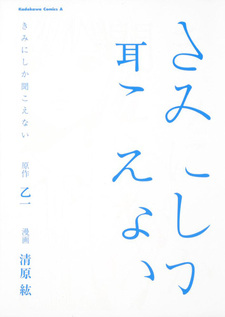 Kadokawa Comics A
きみにしか
聞こえない
きみにしか聞こえない
原作 乙一 漫画 清原紘